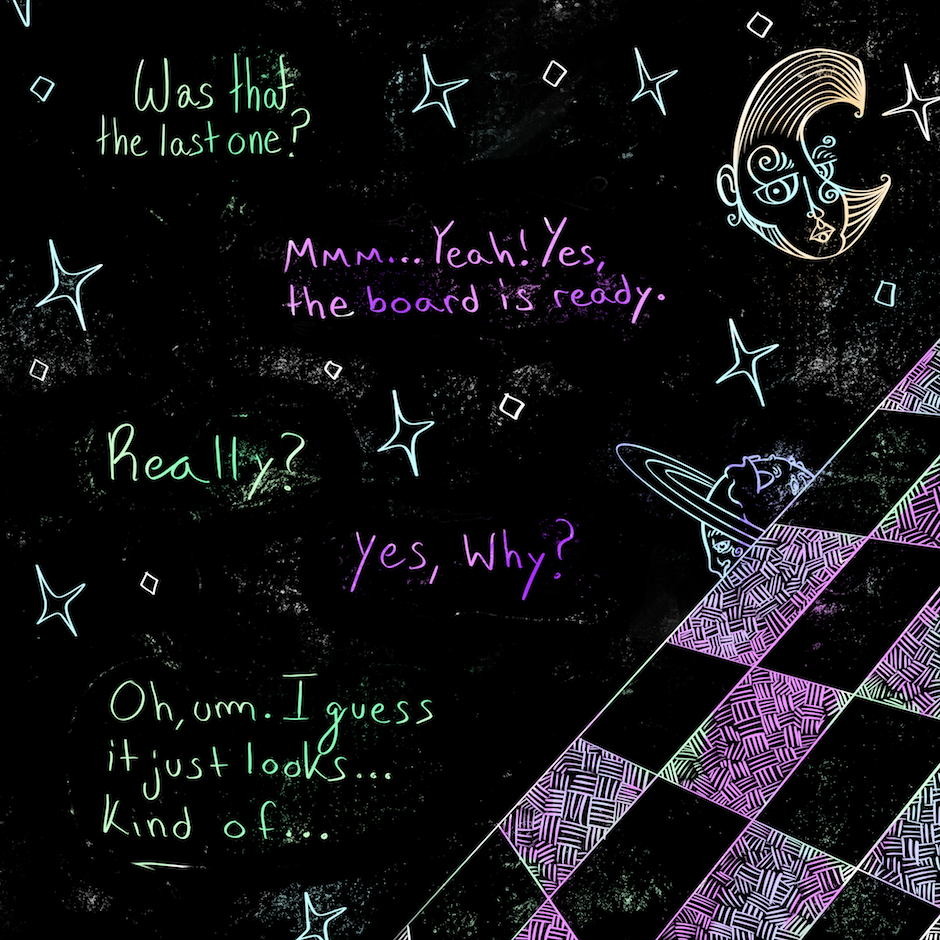 Was that
the last one?
Mmm... Yeah! Yes,
the board is ready.
Really?
Yes, Why?
Oh, um. I guess
it just looks...
Kind of...